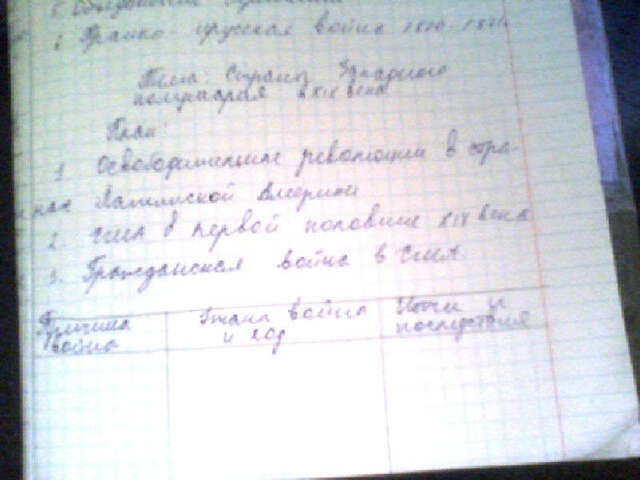 6 Франко-прусская война 1870-1871
Тема: Страны Западного
полушария в XIX веке
План:
1. Освободительные революции в стра-
нах Латинской Америки
2. США в первой половине XIX века
3. Гражданская война в США.
Причина
войны
Этапы война
и ход
Итоги и
последствия